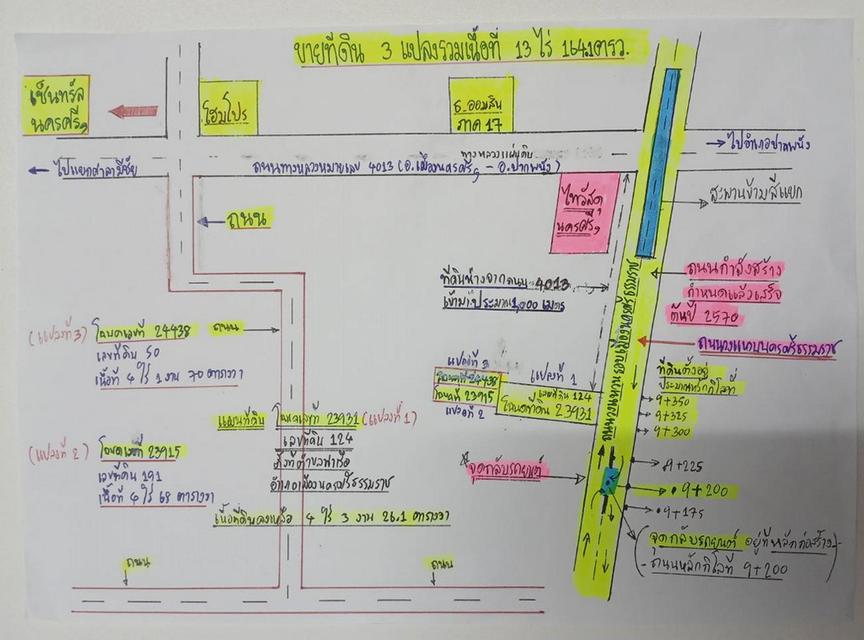 ขายที่ดิน 3 แปลงรวมเนื้อที่ 13 ไร่ 164.1 ตรว.
เซ็นทรัล
นครศรีฯ
โฮมโปร
ธ.ออมสิน
ภาค 17
ไปแยกศาลามีชัย
ทางหลวงแผ่นดิน
ถนนทางหลวงหมายเลข 4013 (อ.เมืองนครศรีฯ - อ.ปากพนัง)
ไปอำเภอปากพนัง
ไทวัสดุ
นครศรีฯ
สะพานข้ามสี่แยก
ถนน
ที่ดินห่างจากถนน 4013
เข้ามาประมาณ 1,000 เมตร
ถนนกำลังสร้าง
กำหนดแล้วเสร็จ
ต้นปี 2570
(แปลงที่ 3) โฉนดเลขที่ 24938
ถนน
เลขที่ดิน 50
เนื้อที่ 4 ไร่ 1 งาน 70 ตารางวา
ถนนวงแหวนนครศรีธรรมราช
แปลงที่ 3
โฉนดที่ 24938
โฉนดที่ 23915
แปลงที่ 2
แปลงที่ 1
เลขที่ดิน 124
โฉนดที่ดิน 23931
ที่ดินตั้งอยู่
ประมาณหลักกิโลที่
9+350
9+325
9+300
แผนที่ดิน โฉนดเลขที่ 23931 (แปลงที่ 1)
เลขที่ดิน 124
ตั้งที่ตำบลท่าเรือ
อำเภอเมืองนครศรีธรรมราช
เนื้อที่ดินคงเหลือ 4 ไร่ 3 งาน 26.1 ตารางวา
(แปลงที่ 2) โฉนดเลขที่ 23915
เลขที่ดิน 191
เนื้อที่ 4 ไร่ 68 ตารางวา
*จุดกลับรถยนต์
9+225
9+200
9+175
(จุดกลับรถยนต์ อยู่ที่หลักก่อสร้าง)
- ถนนหลักกิโลที่ 9+200
ถนน
ถนน